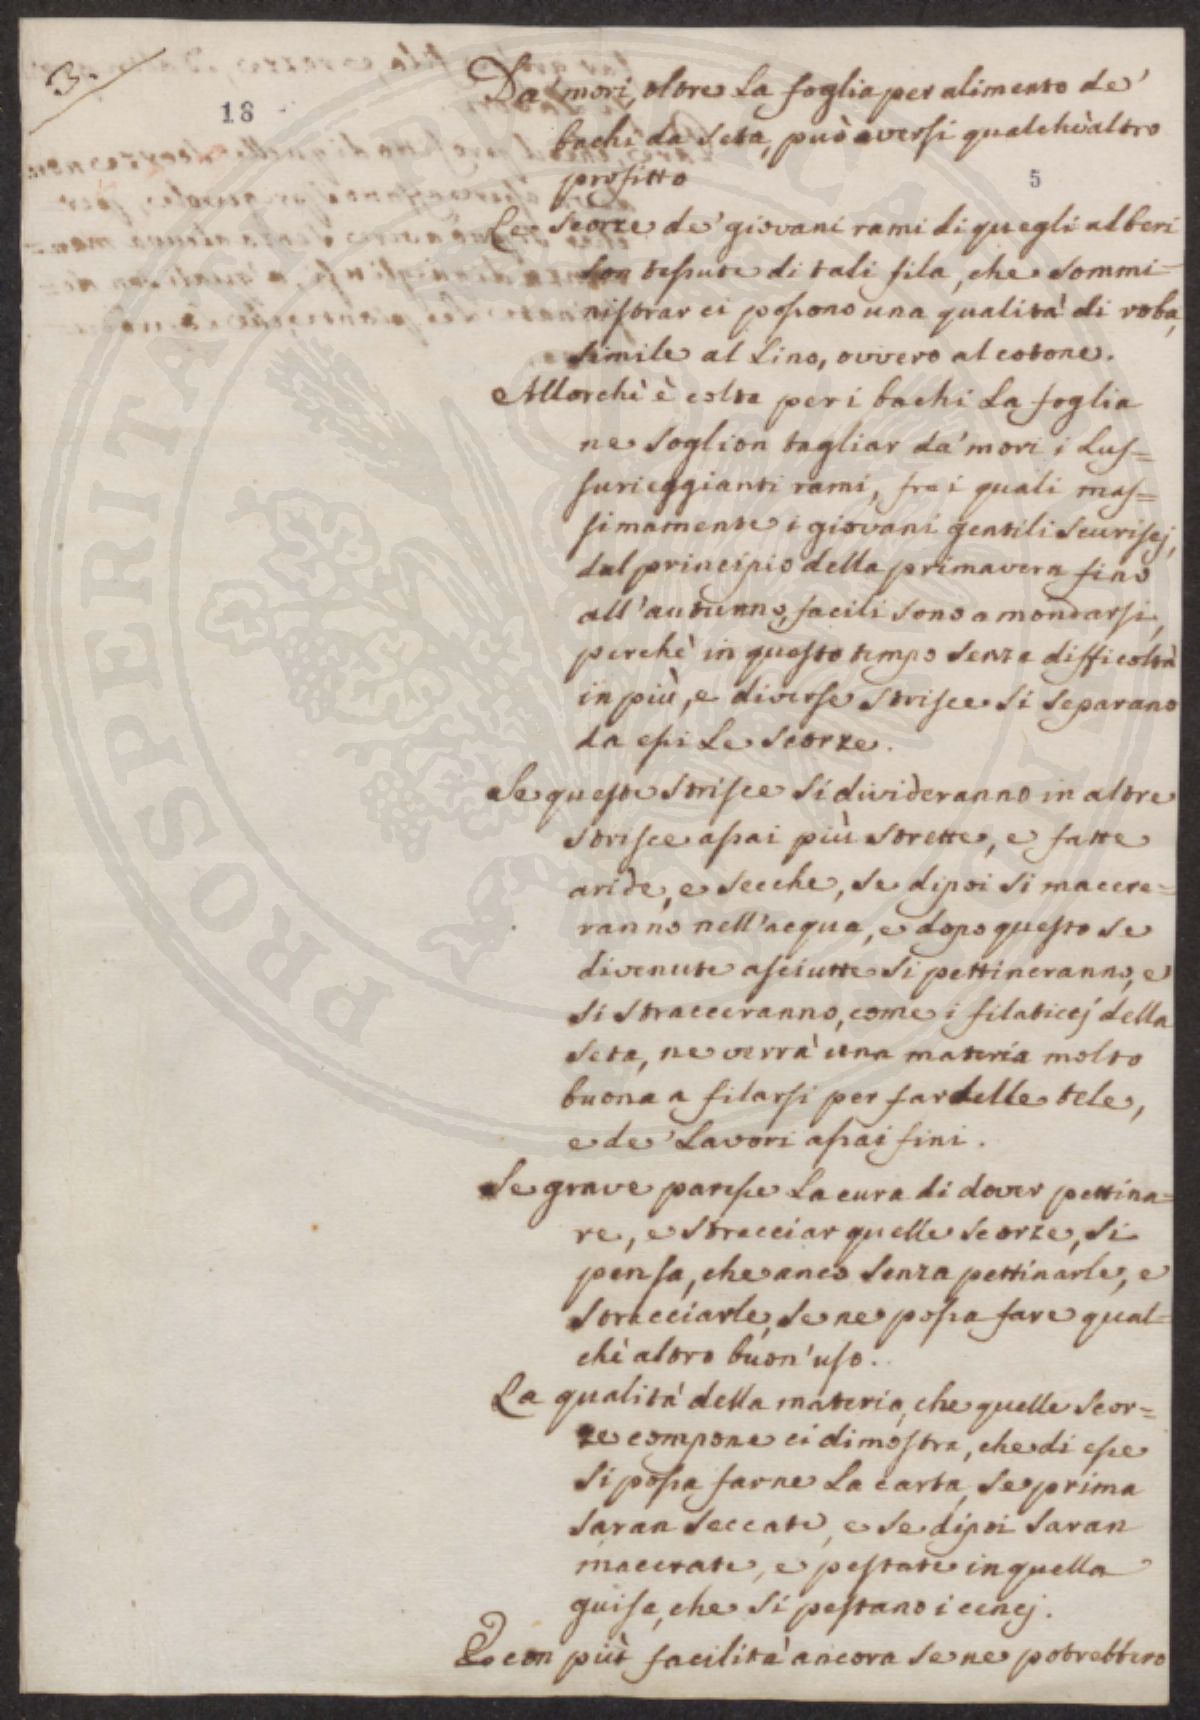 3.
18
5
Da' mori, oltre la foglia per alimento de'
bachi da seta, può aversi qualch'altro
profitto
Le scorze de' giovani rami di quegli alberi
son tessute di tali fila, che sommi=
nistrar ci possono una qualità di roba,
simile al lino, ovvero al cotone.
Allorchè è colta per i bachi la foglia
ne soglion tagliar da' mori i lus=
sureggianti rami, fra i quali mas=
simamente i giovani gentili scuriscj,
dal principio della primavera fino
all'autunno, facili sono a mondarsi,
perchè in questo tempo senza difficoltà
in più, e diverse strisce si separano
da essi le scorze.
Se queste strisce si divideranno in altre
strisce assai più strette, e fatte
aride, e secche, se dipoi si macere=
ranno nell'acqua, e dopo questo se
divenute asciutte si pettineranno, e
si stracceranno, come i filaticcj della
seta, ne verrà una materia molto
buona a filarsi per far delle tele,
e de' lavori assai fini.
Se grave paresse la cura di dover pettina=
re, e stracciar quelle scorze, si
pensa, che anco senza pettinarle, e
stracciarle, se ne possa fare qual=
chè altro buon'uso.
La qualità della materia, che quelle scor=
ze compone ci dimostra, che di esse
si possa farne la carta, se prima
saran seccate, e se dipoi saran
macerate, e pestate in quella
guisa, che si pestano i cencj.
E con più facilità ancora se ne potrebbero
PROSPERITATI PUBLICAE